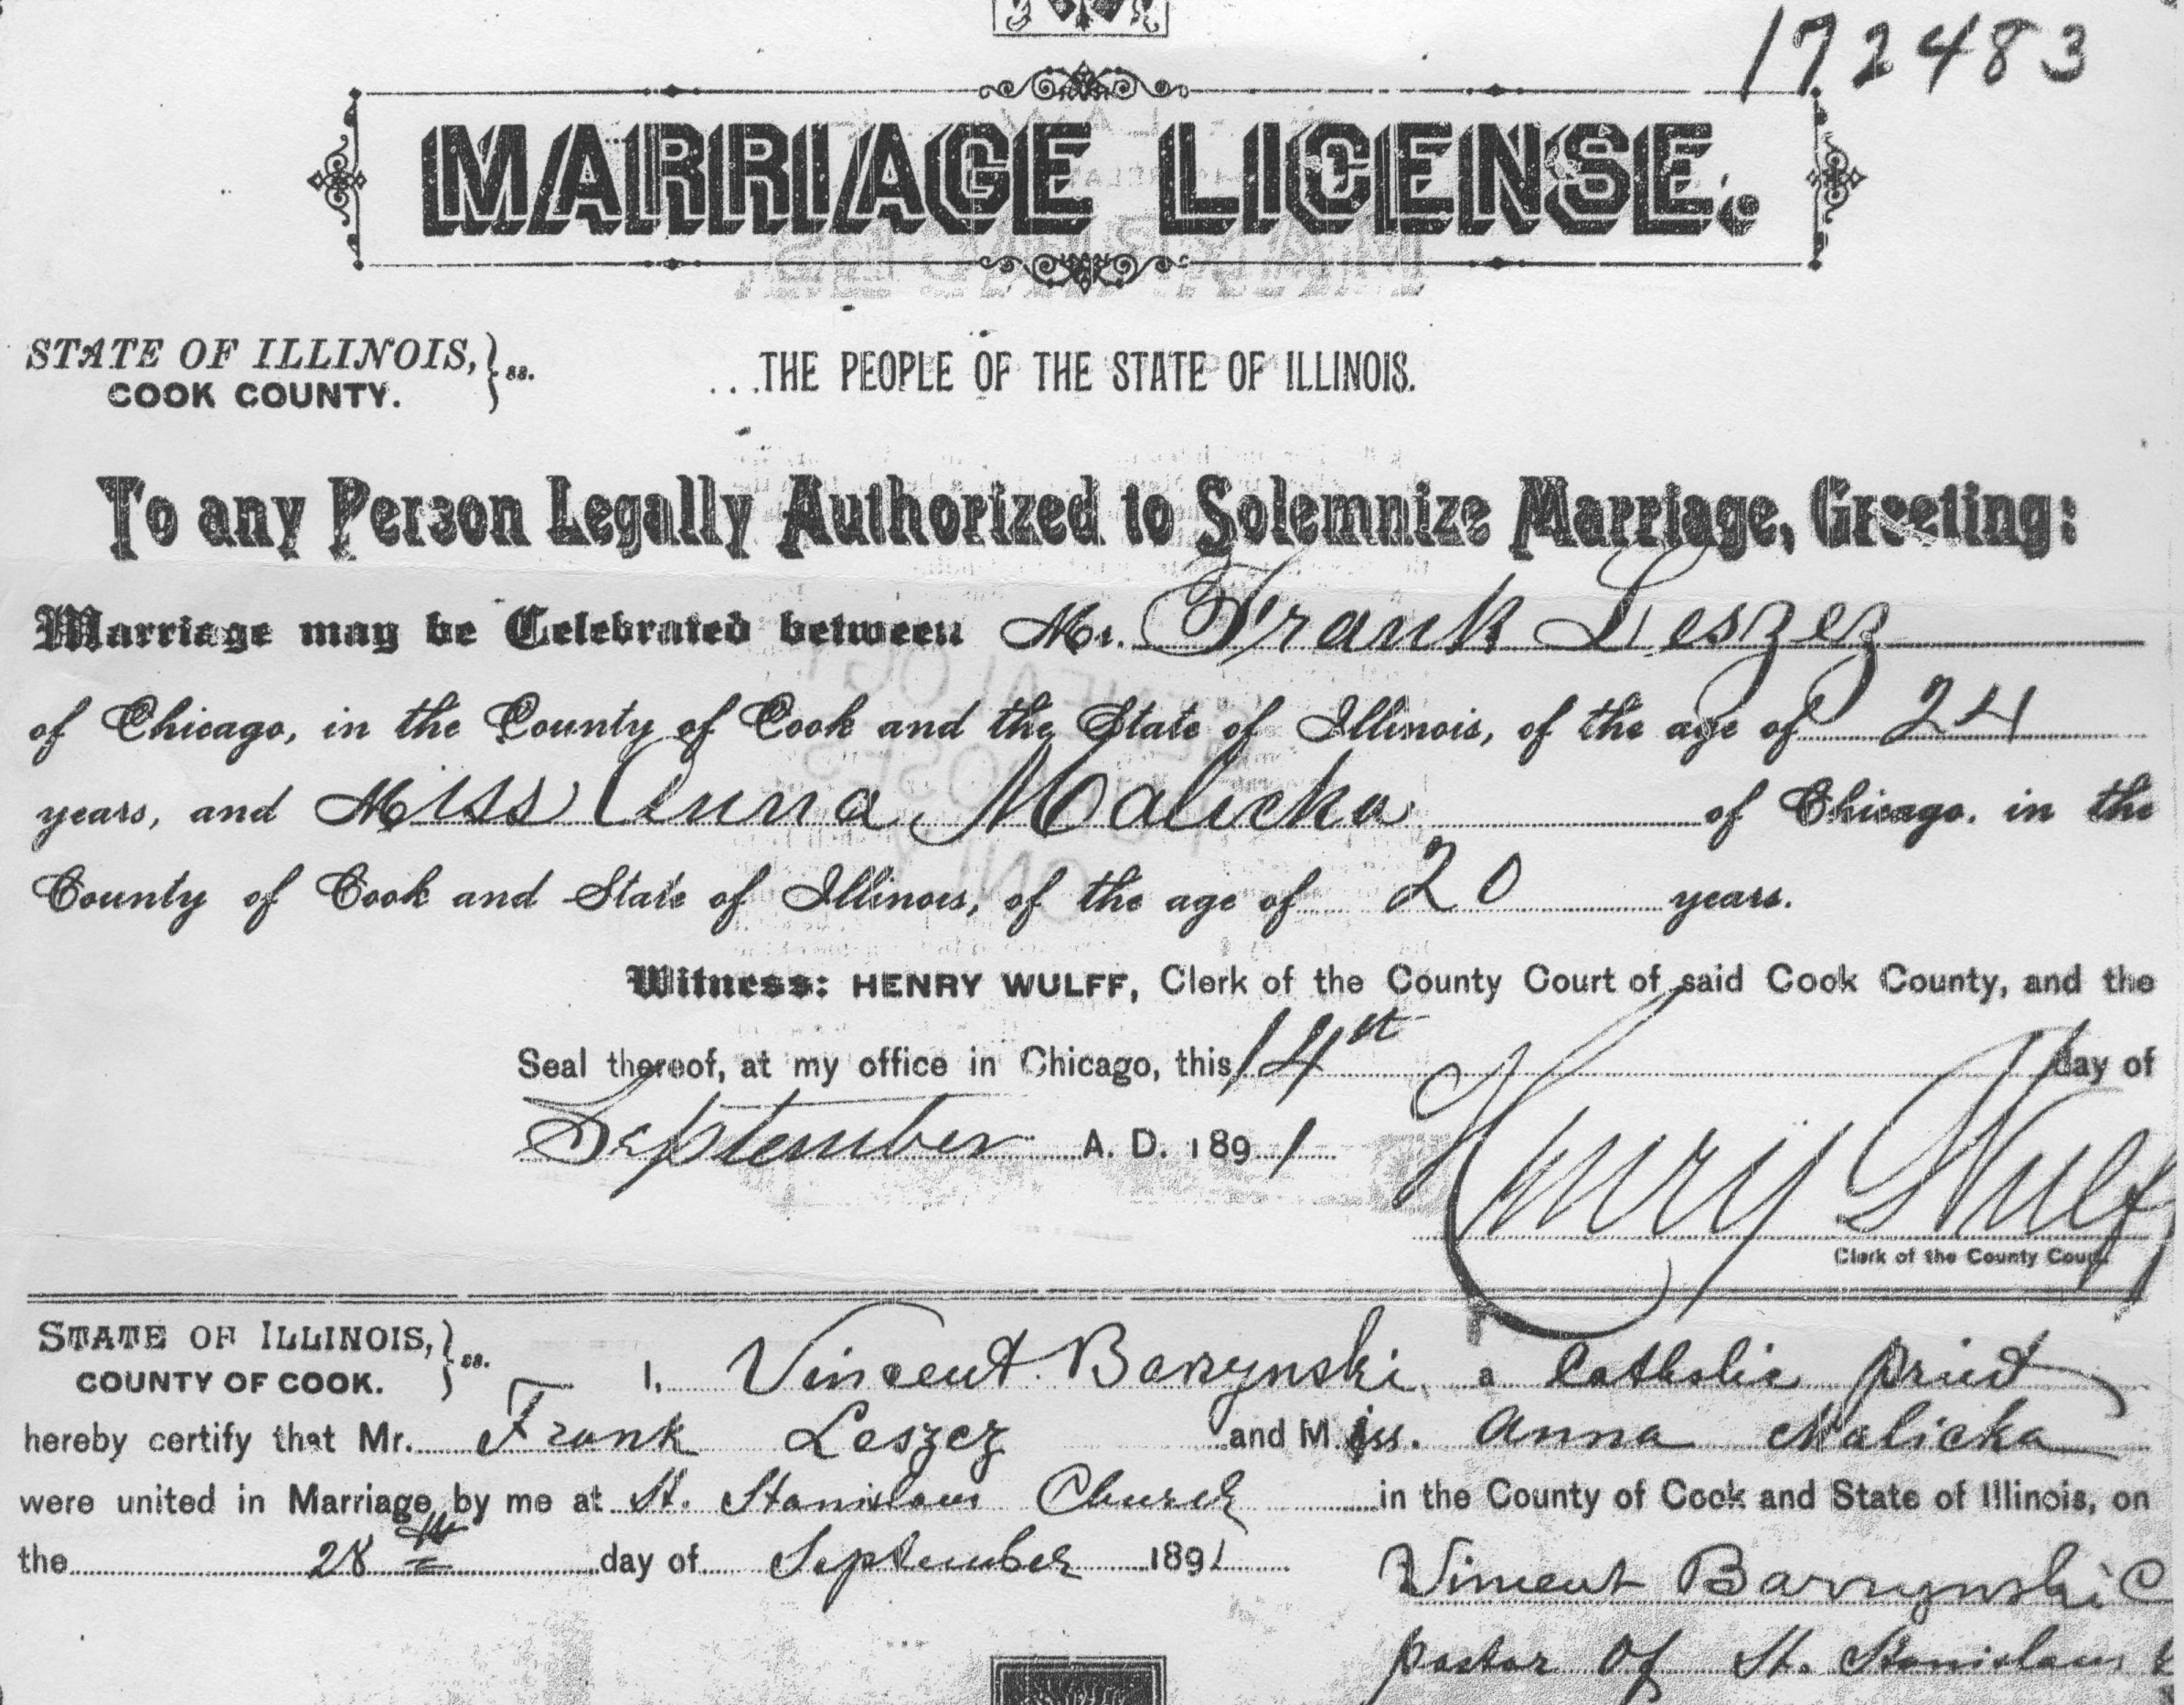 172483
MARRIAGE LICENSE.
STATE OF ILLINOIS, } ss.
COOK COUNTY.
...THE PEOPLE OF THE STATE OF ILLINOIS.
To any Person Legally Authorized to Solemnize Marriage, Greeting:
Marriage may be Celebrated between Mr. Frank Leszez
of Chicago, in the County of Cook and the State of Illinois, of the age of 24
years, and Miss Anna Malicka of Chicago, in the
County of Cook and State of Illinois, of the age of 20 years.
Witness: HENRY WULFF, Clerk of the County Court of said Cook County, and the
Seal thereof, at my office in Chicago, this 14th day of
September A. D. 1891
Henry Wulff
Clerk of the County Court
STATE OF ILLINOIS, } ss.
COUNTY OF COOK.
I, Vincent Barzynski a Catholic priest
hereby certify that Mr. Frank Leszez and Miss. Anna Malicka
were united in Marriage by me at St. Stanislaus Church in the County of Cook and State of Illinois, on
the 28th day of September 1891
Vincent Barzynski C
pastor of St. Stanislaus